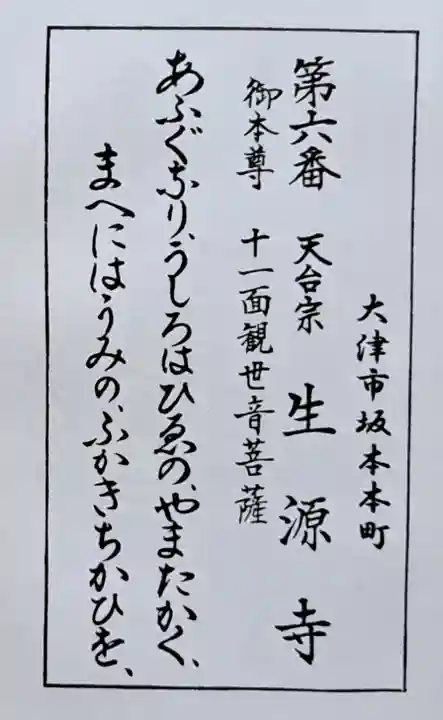 大津市坂本本町
第六番 天台宗 生源寺
御本尊 十一面観世音菩薩
あふぐなり、うしろはひゑの、やまたかく、
まへにはうみの、ふかきちかひを、